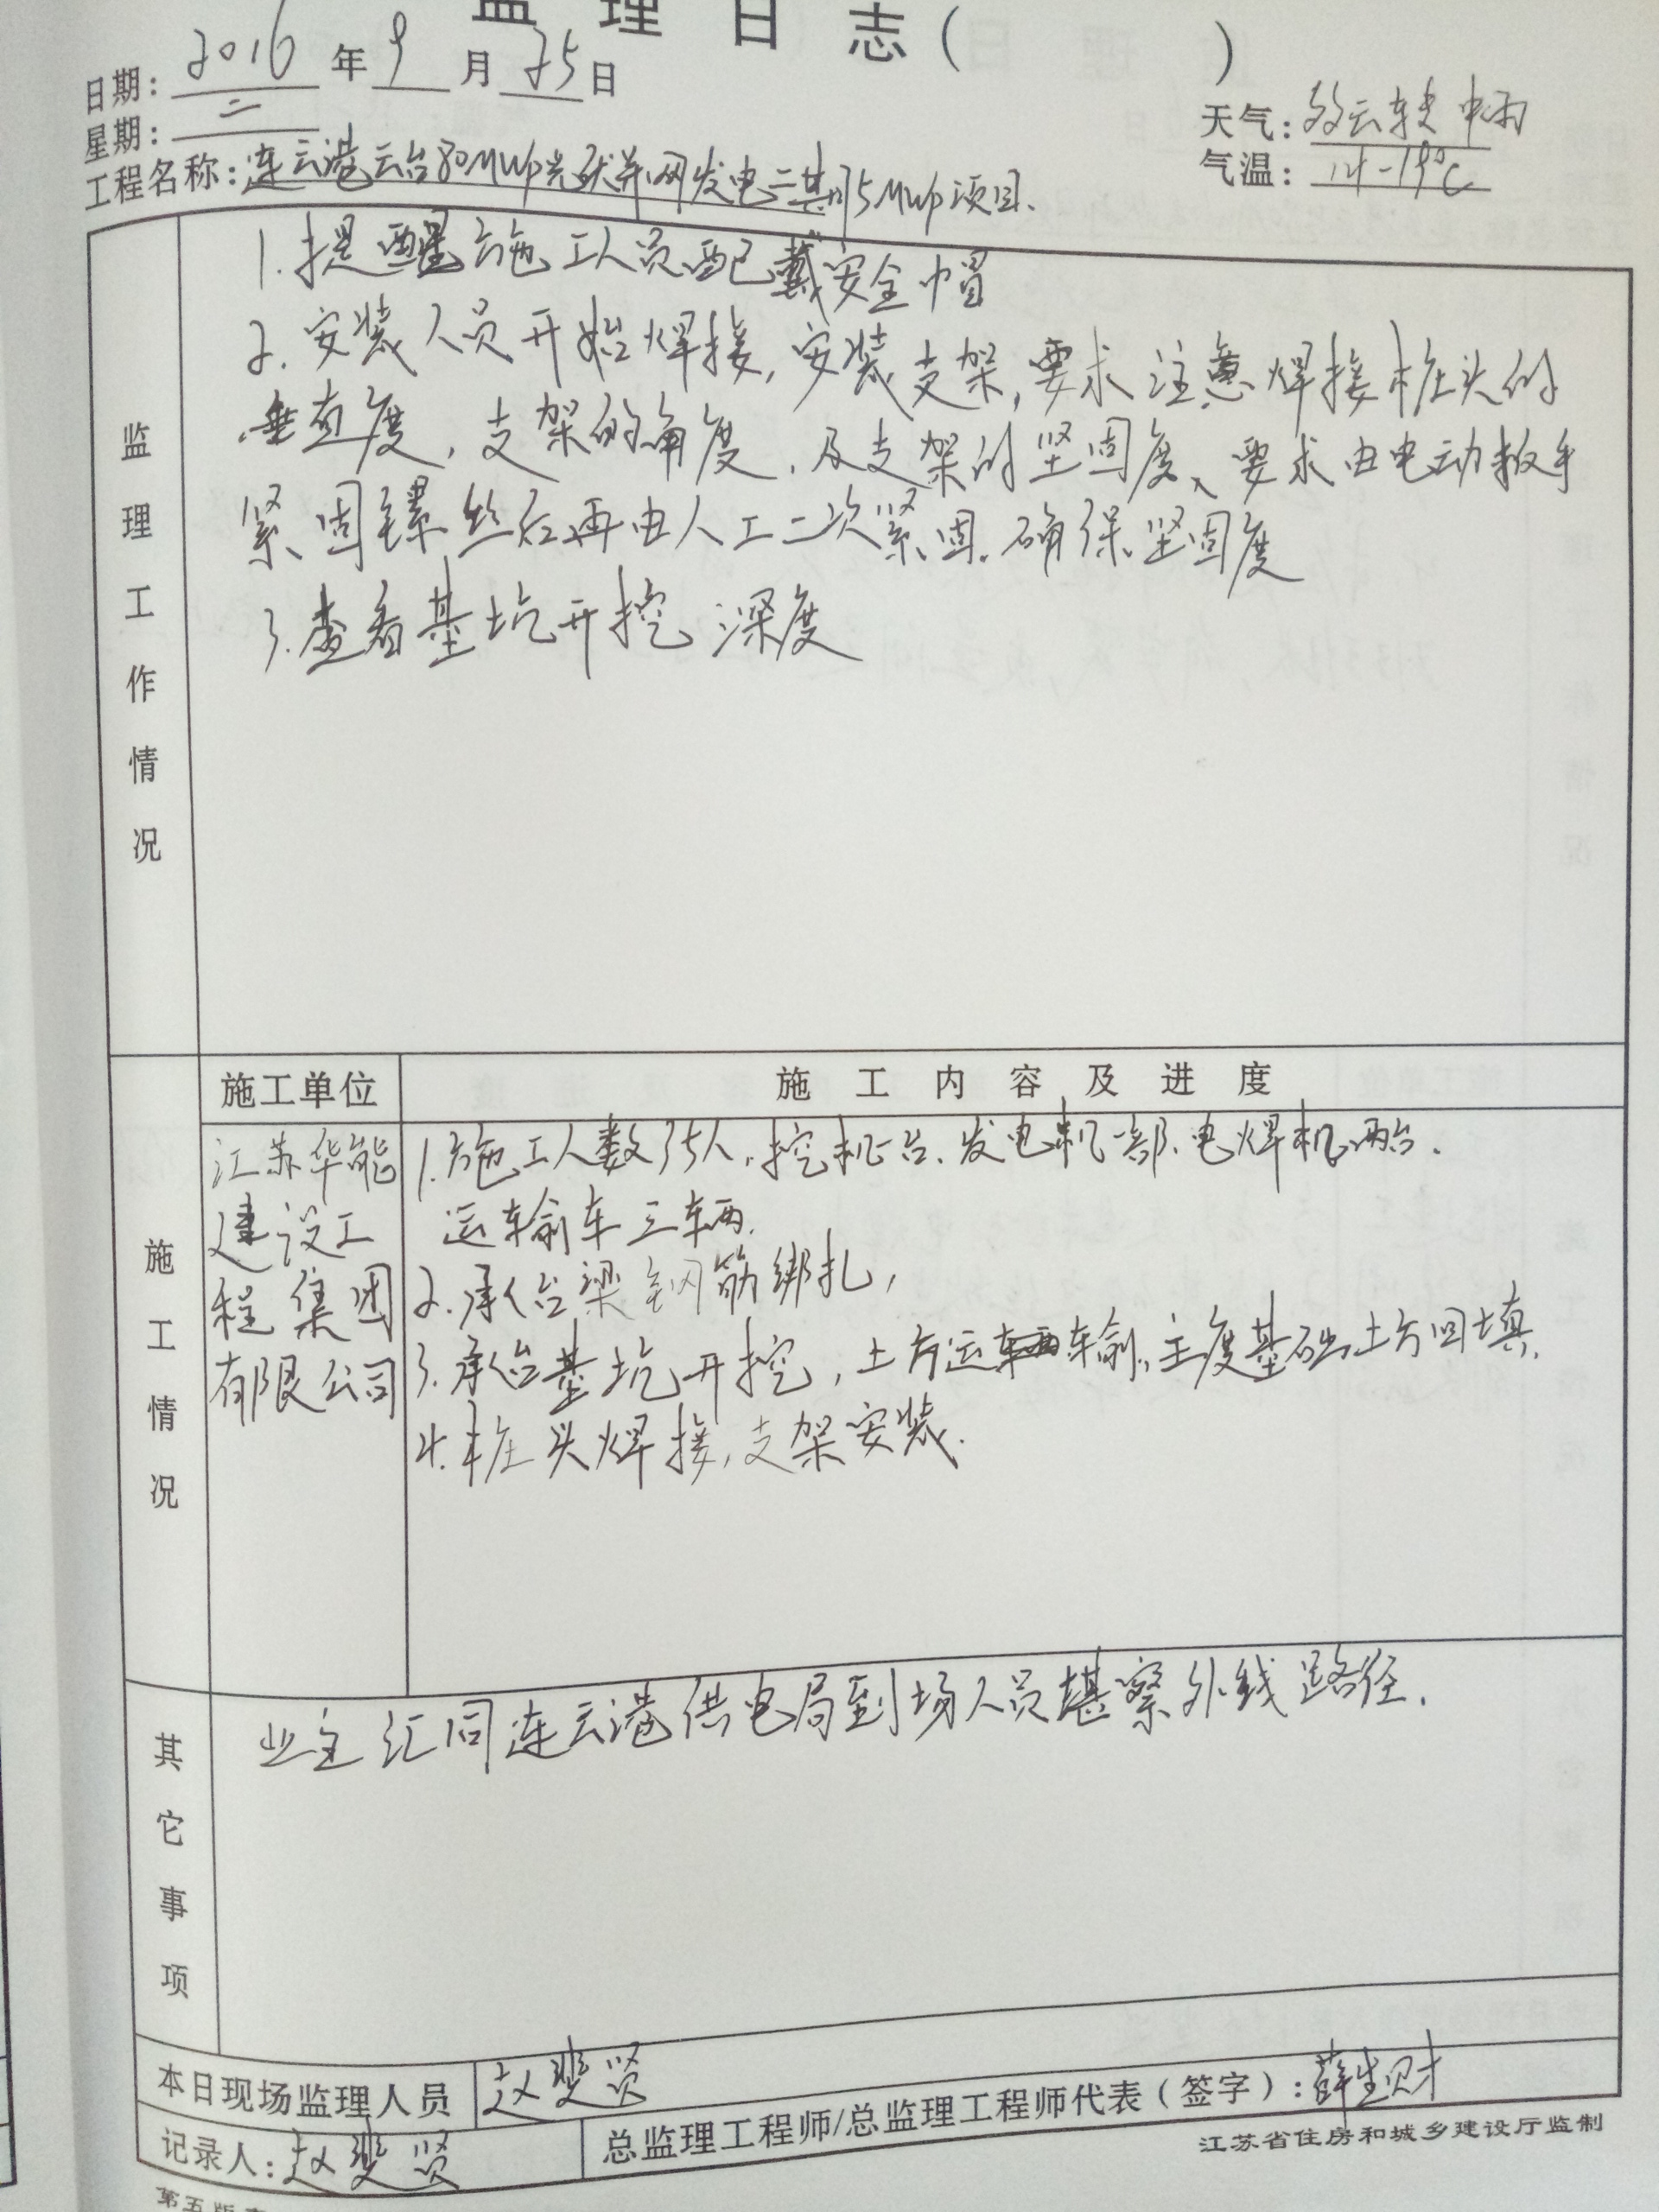 监理日志( )
日期: 2016 年 9 月 25 日
星期: 二
天气: 多云转 中雨
气温: 14-19℃
工程名称: 连云港云台80MWp光伏并网发电二期5MWp项目.
监理工作情况
1. 提醒施工人员配戴安全帽
2. 安装人员开始焊接, 安装支架, 要求注意焊接桩头的
垂直度, 支架的角度, 及支架的坚固度、要求由电动扳手
紧固镙丝后再由人工二次紧固. 确保坚固度
3. 查看基坑开挖深度
施工情况
施工单位
施工内容及进度
江苏华能
建设工
程集团
有限公司
1. 施工人数35人, 挖机一台. 发电机一部. 电焊机两台.
运输车三辆.
2. 承台梁钢筋绑扎,
3. 承台基坑开挖, 土方运输, 基础土方回填.
4. 桩头焊接, 支架安装.
其它事项
业主汇同连云港供电局到场人员堪察外线路径.
本日现场监理人员 赵斐贤
总监理工程师/总监理工程师代表(签字): 薛生财
记录人: 赵斐贤
江苏省住房和城乡建设厅监制
第五版